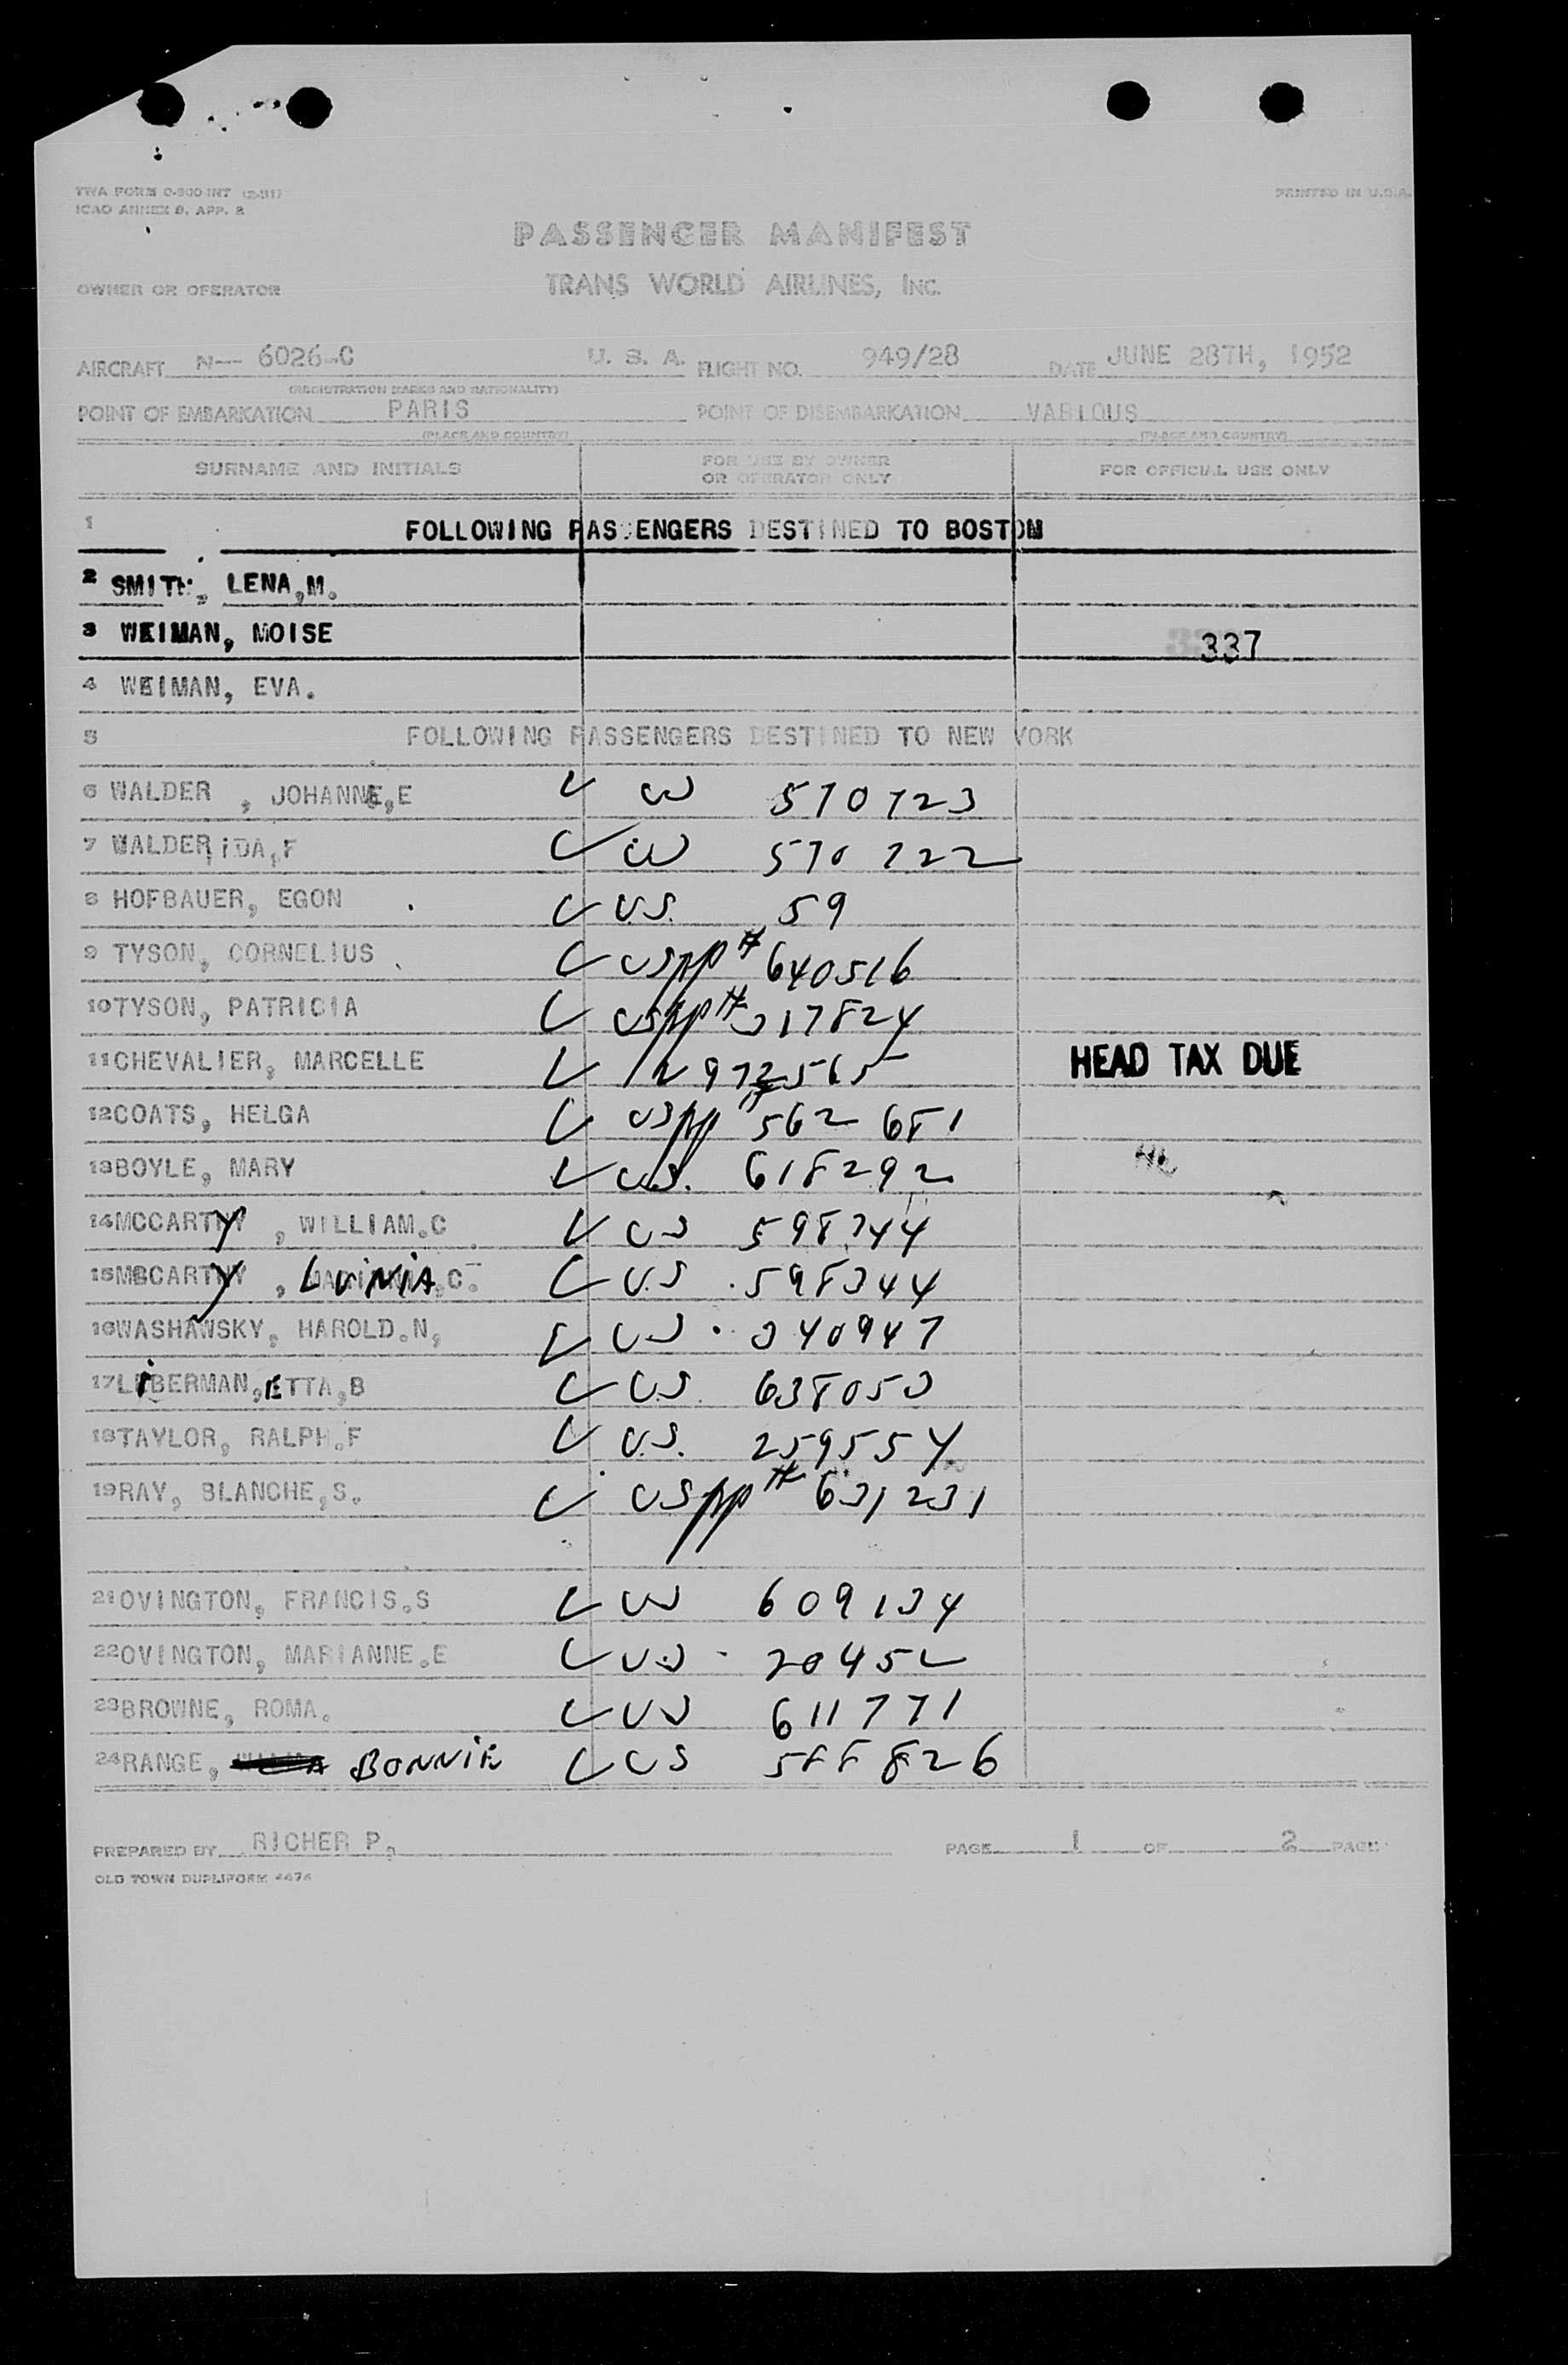 TWA FORM O-800-INT (2-51)
ICAO ANNEX 9, APP. 2
PRINTED IN U.S.A.
PASSENGER MANIFEST
OWNER OR OPERATOR TRANS WORLD AIRLINES, INC.
AIRCRAFT N— 6026-C U. S. A. FLIGHT NO. 949/28 DATE JUNE 28TH, 1952
(REGISTRATION MARKS AND NATIONALITY)
POINT OF EMBARKATION PARIS POINT OF DISEMBARKATION VARIOUS
(PLACE AND COUNTRY) (PLACE AND COUNTRY)
SURNAME AND INITIALS FOR USE BY OWNER OR OPERATOR ONLY FOR OFFICIAL USE ONLY
1 FOLLOWING PASSENGERS DESTINED TO BOSTON
2 SMITH, LENA,M.
3 WEIMAN, MOISE 337
4 WEIMAN, EVA.
5 FOLLOWING PASSENGERS DESTINED TO NEW YORK
6 WALDER , JOHANNE,E US 570723
7 WALDER, IDA,F US 570722
8 HOFBAUER, EGON U.S. 59
9 TYSON, CORNELIUS USPP# 640516
10 TYSON, PATRICIA USPP# 317824
11 CHEVALIER, MARCELLE 972565 HEAD TAX DUE
12 COATS, HELGA USPP# 562681
13 BOYLE, MARY U.S. 618292
14 MCCARTHY , WILLIAM.C US 598344
15 MCCARTHY , LUNIA.C. U.S. 598344
16 WASHAWSKY, HAROLD.N, US. 340947
17 LIBERMAN,ETTA,B U.S. 638053
18 TAYLOR, RALPH.F U.S. 259554
19 RAY, BLANCHE,S. USPP# 631231
21 OVINGTON, FRANCIS.S US 609134
22 OVINGTON, MARIANNE.E U.S. 20452
23 BROWNE, ROMA. US 611771
24 RANGE, BONNIE US 588826
PREPARED BY RICHER P. PAGE 1 OF 2 PAGE
OLD TOWN DUPLIFORM 4474